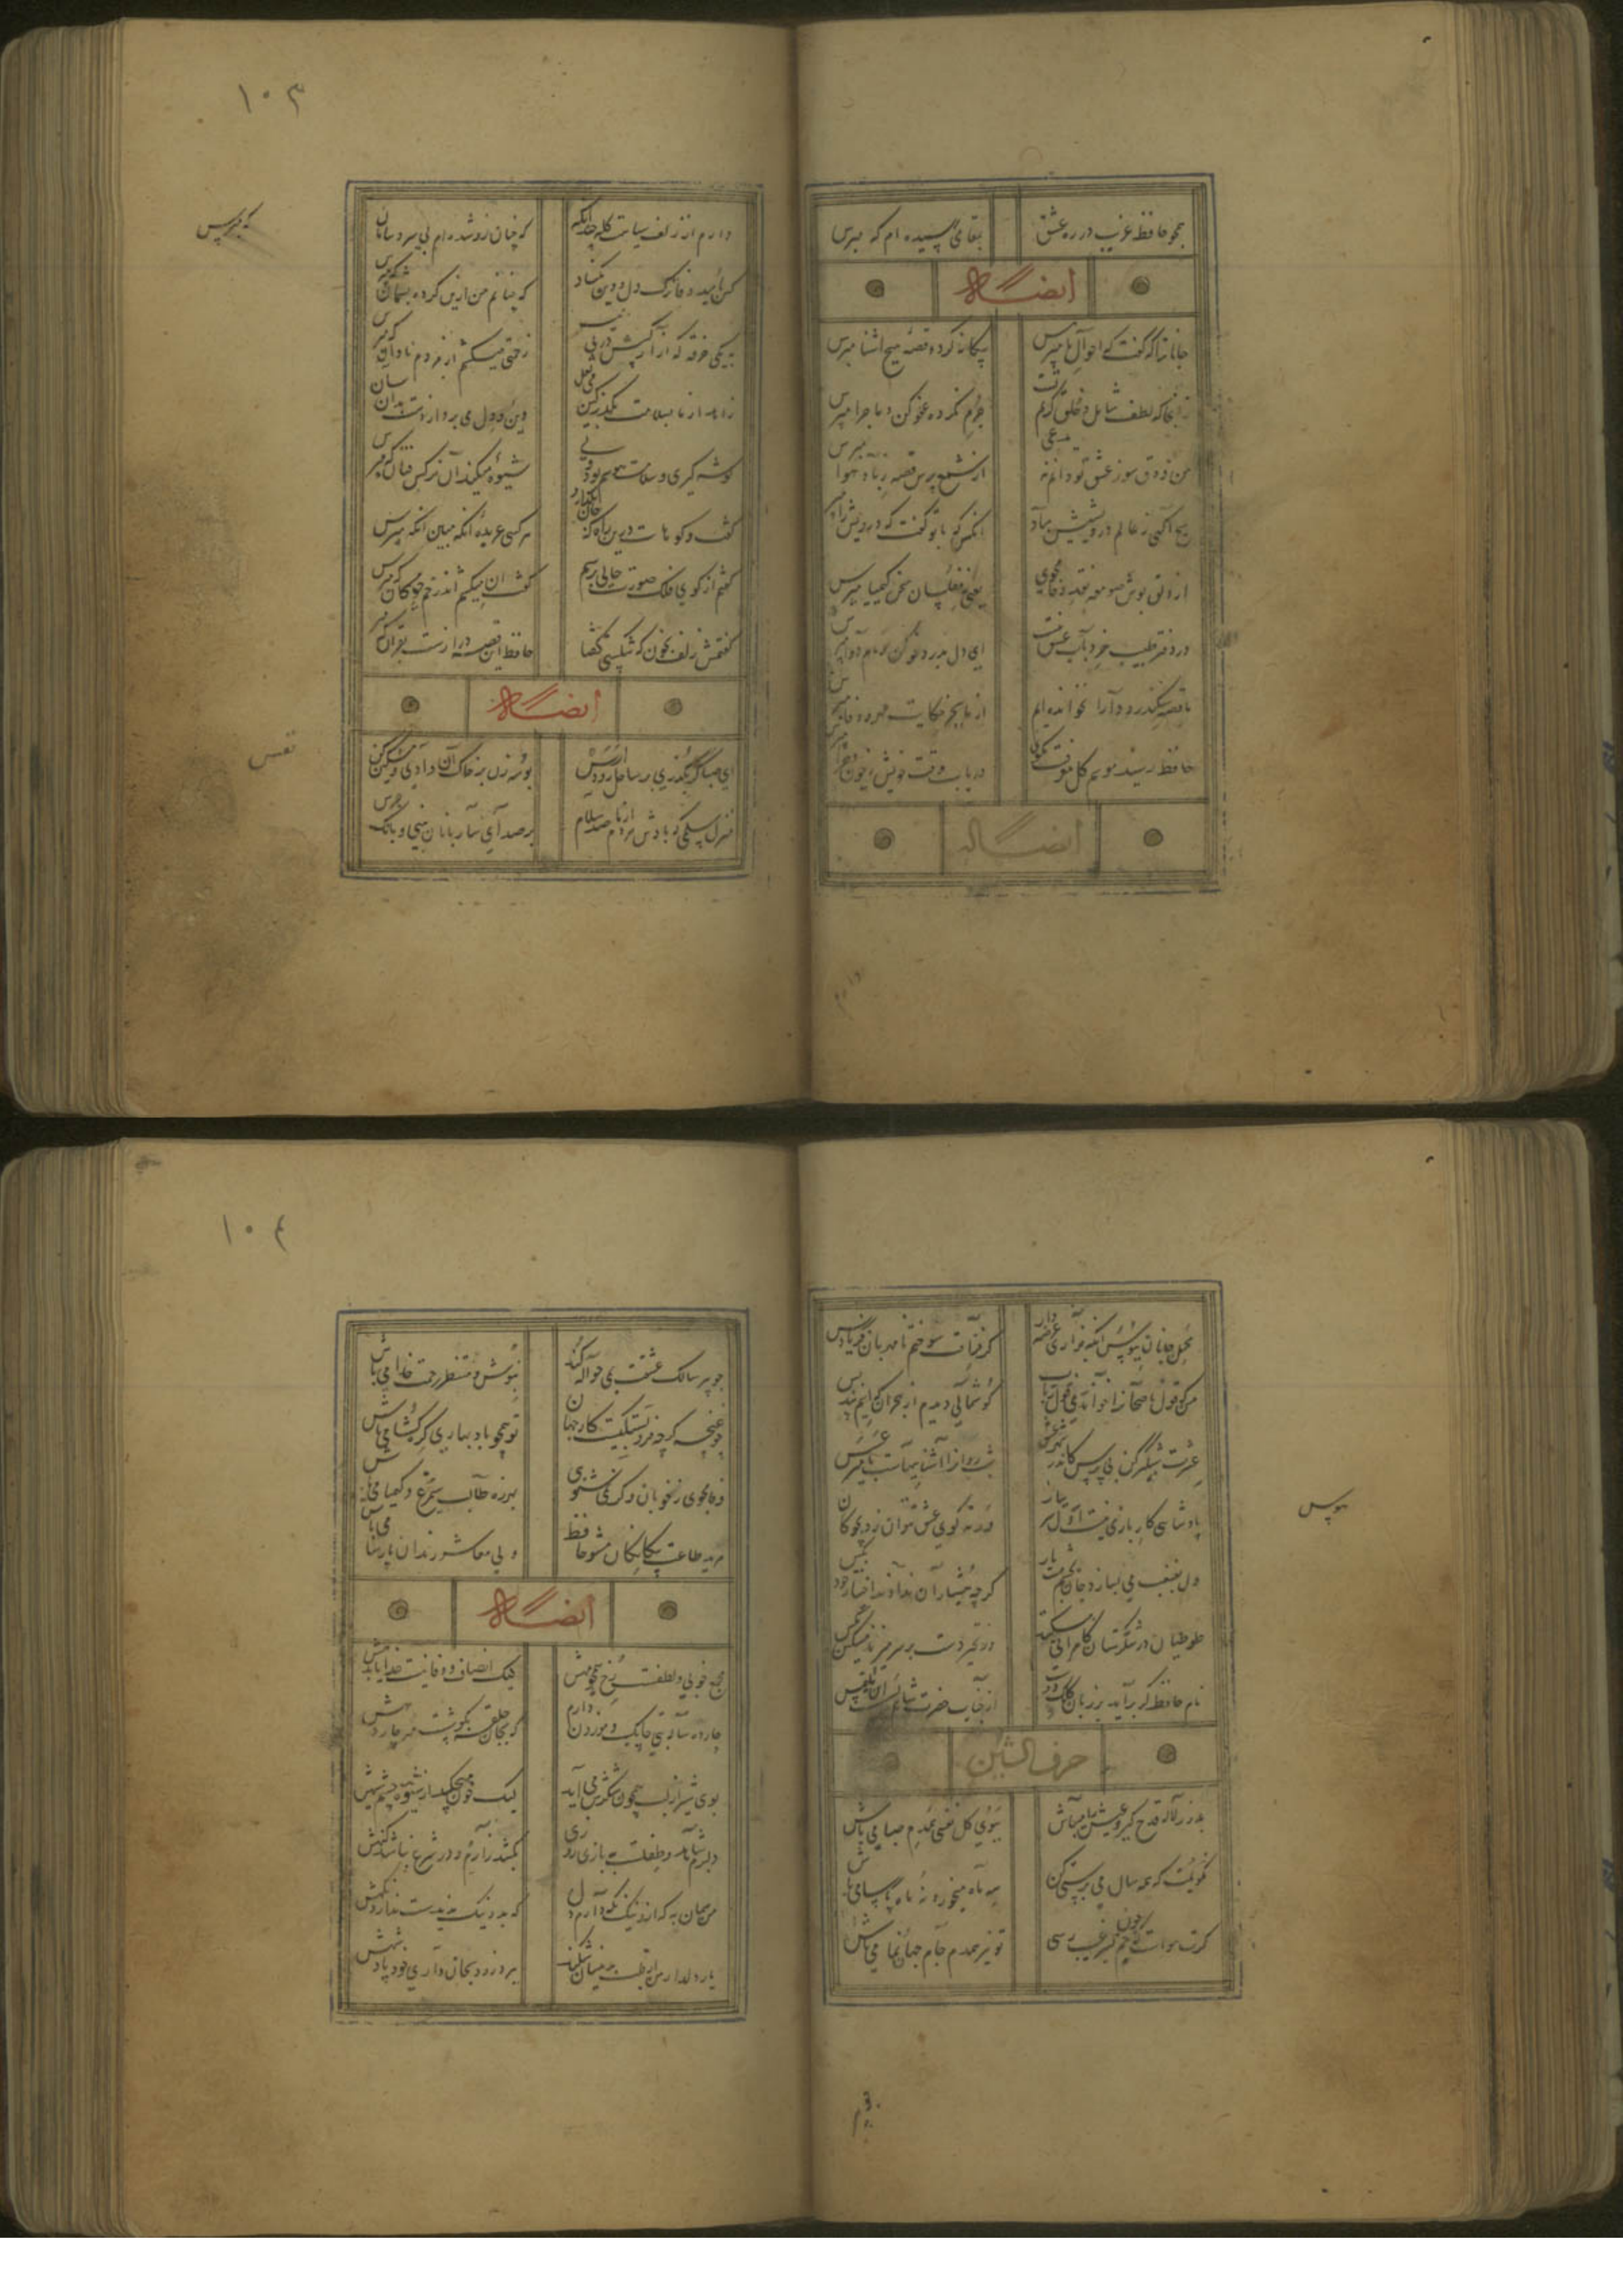 همچو حافظ غریب در ره عشق
بمقامی رسیده ام که مپرس
ایضاً له
جانا ترا که گفت که احوال ما مپرس
بیگانه کرد و قصه هیچ آشنا مپرس
زآنجا که لطف شامل و خلق کریم تست
جرم نکرده عفو کن و ماجرا مپرس
من ذوق سوز عشق تو دانم نه مدعی
از شمع پرس قصه ز باد هوا مپرس
هیچ آگهی ز عالم درویشیش نبود
آنکس که با تو گفت که درویش را مپرس
از دلق پوش صومعه نقد وفا مجوی
یعنی ز مفلسان سخن کیمیا مپرس
در دفتر طبیب خرد باب عشق نیست
ای دل بدرد خو کن و نام دوا مپرس
ما قصه سکندر و دارا نخوانده ایم
از ما بجز حکایت مهر و وفا مپرس
حافظ رسید موسم گل معرفت مگوی
دریاب وقت خویش و ز چون و چرا مپرس
ایضاً له
۱۰۳
دارم از زلف سیاهت گله چندانکه مپرس
که چنان زو شده ام بی سر و سامان
کس بامید وفا ترک دل و دین مکناد
که چنانم من ازین کرده پشیمان که مپرس
به یکی جرعه که آزار کسش در پی نیست
زحمتی میکشم از مردم نادان که مپرس
زاهد از ما بسلامت بگذر کین می لعل
دین و دل می برد از دست بدان سان
گوشه گیری و سلامت هوسم بود ولی
شیوه میکند آن نرگس فتان که مپرس
گفت و گو هاست درین راه که جان بگدازد
هر کسی عربده اینکه مبین آنکه مپرس
گفتم از گوی فلک صورت حالی پرسم
گفت آن میکشم اندر خم چوگان که مپرس
گفتمش زلف بخون که شکستی گفتا
حافظ این قصه درازست بقرآن که مپرس
که مپرس
ایضاً له
ای صبا گر بگذری بر ساحل رود ارس
بوسه زن بر خاک آن وادی و مشکین کن
نفس
منزل سلمی که بادش هر دم از ما صد سلام
پر صدای ساربانان بینی و بانگ جرس
محمل جانان ببوس آنگه بزاری عرضه دار
کز فراقت سوختم ای مهربان فریاد رس
من که قول ناصحان را خواندمی قول رباب
گوشمالی دیدم از هجران که اینم پند بس
عشرت شبگیر کن بی ترس کاندر شهر عشق
شب روان را آشناییهاست با میر عسس
ورنه گوی عشق نتوان زد بچوگان
هوس
گرچه هشیاران ندادند اختیار خود بکس
طوطیان در شکرستان کامرانی میکنند
وز تحیر دست بر سر میزند مسکین مگس
نام حافظ گر برآید بر زبان کلک دوست
از جناب حضرت شاهم بس است این ملتمس
حرف الشین
بدور لاله قدح گیر و بی ریا میباش
ببوی گل نفسی همدم صبا می باش
نگویمت که همه سال می پرستی کن
سه ماه میخور و نه ماه پارسا می باش
تو نیز همدم جام جهان نما می باش
۱۰۴
چو پیر سالک عشقت بمی حواله کند
بنوش و منتظر رحمت خدا می باش
چو غنچه گرچه فروبستگیست کار جهان
تو همچو باد بهاری گره گشا می باش
وفا مجوی ز خوبان و گر نمی شنوی
بهرزه طالب سیمرغ و کیمیا می باش
مرید طاعت بیگانگان مشو حافظ
ولی معاشر رندان پارسا می باش
ایضاً له
مجمع خوبی و لطفست رخ همچو مهش
لیک انصاف و وفا نیست خدایا بدهش
چارده ساله بتی چابک و موزون دارم
که بجان حلقه بگوشست مه چاردهش
بوی شیر از لب همچون شکرش می آید
لیک خون میچکد از شیوه چشم سیهش
دلبرم شاهد و طفلست به بازی روزی
بکشد زارم و در شرع نباشد گنهش
من همان به که ازو نیک نگه دارم دل
که بد و نیک ندیدست و ندارد نگهش
یار دلدار من ار قلب بدینسان شکند
ببرد زود بجان داری خود پادشهش